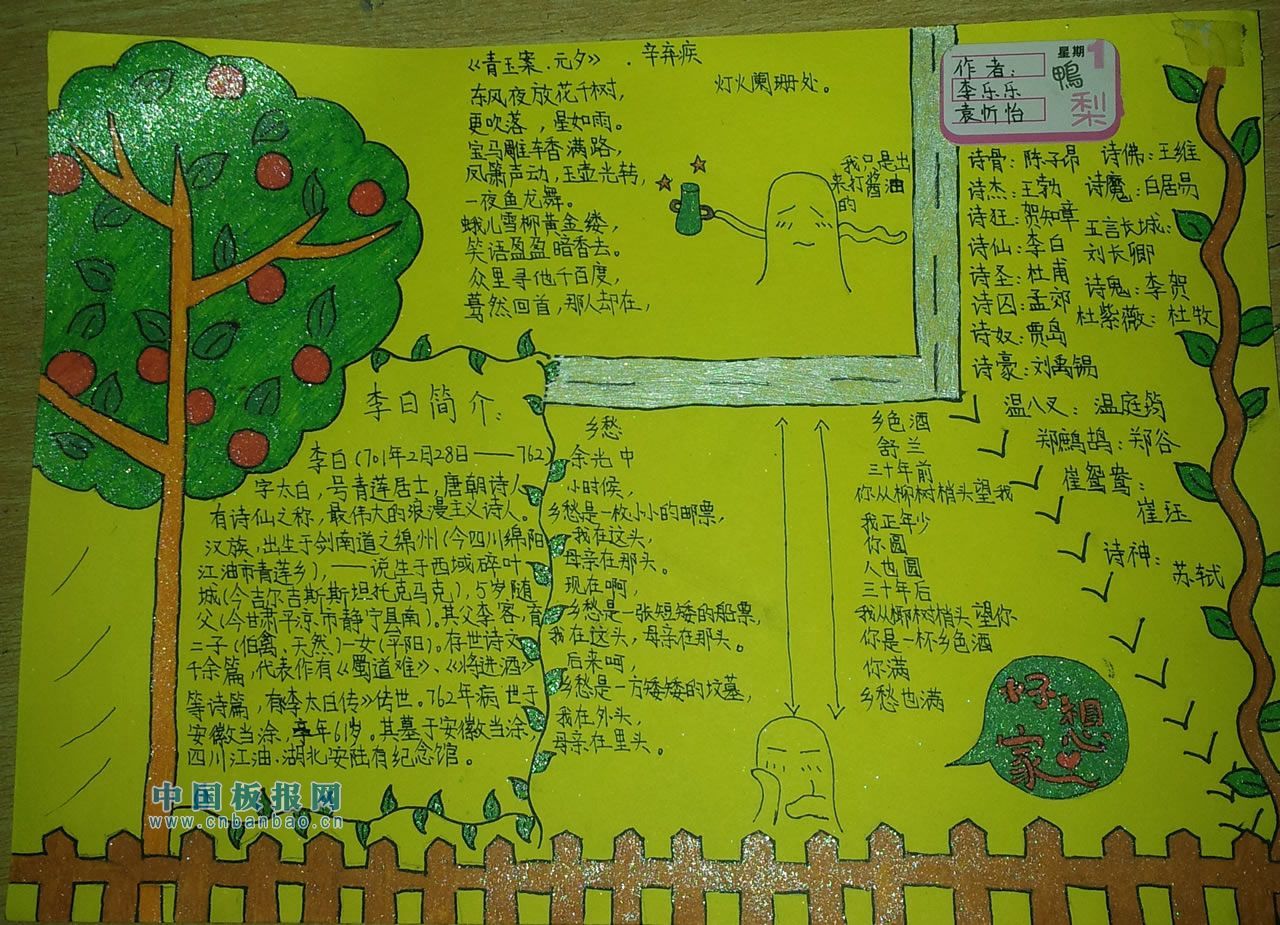 《青玉案.元夕》 . 辛弃疾
东风夜放花千树,
更吹落,星如雨。
宝马雕车香满路,
凤箫声动,玉壶光转,
一夜鱼龙舞。
蛾儿雪柳黄金缕,
笑语盈盈暗香去。
众里寻他千百度,
蓦然回首,那人却在,
灯火阑珊处。
我只是出
来打酱油
的
星期1
作者:
李乐乐
袁忻怡
鴨
梨
诗骨:陈子昂 诗佛:王维
诗杰:王勃 诗魔:白居易
诗狂:贺知章 五言长城:
诗仙:李白 刘长卿
诗圣:杜甫 诗鬼:李贺
诗囚:孟郊 杜紫薇:杜牧
诗奴:贾岛
诗豪:刘禹锡
温八叉:温庭筠
郑鹧鸪:郑谷
崔鸳鸯:
崔珏
诗神:苏轼
李白简介:
李白(701年2月28日——762)
字太白,号青莲居士,唐朝诗人
有诗仙之称,最伟大的浪漫主义诗人。
汉族,出生于剑南道之绵州(今四川绵阳
江油市青莲乡),一说生于西域碎叶
城(今吉尔吉斯斯坦托克马克),5岁随
父(今甘肃平凉市静宁县南),其父李客,育
二子(伯禽、天然)一女(平阳)。存世诗文
千余篇,代表作有《蜀道难》、《将进酒》
等诗篇,有《李太白传》传世。762年病世于
安徽当涂,享年61岁。其墓于安徽当涂,
四川江油.湖北安陆有纪念馆。
乡愁
余光中
小时候,
乡愁是一枚小小的邮票,
我在这头,
母亲在那头。
现在啊,
乡愁是一张短矮的船票,
我在这头,母亲在那头。
后来呵,
乡愁是一方矮矮的坟墓,
我在外头,
母亲在里头。
乡色酒
舒兰
三十年前
你从柳树梢头望我
我正年少
你圆
人也圆
三十年后
我从椰树梢头望你
你是一杯乡色酒
你满
乡愁也满
好想
家
中国板报网
www.cnbanbao.cn